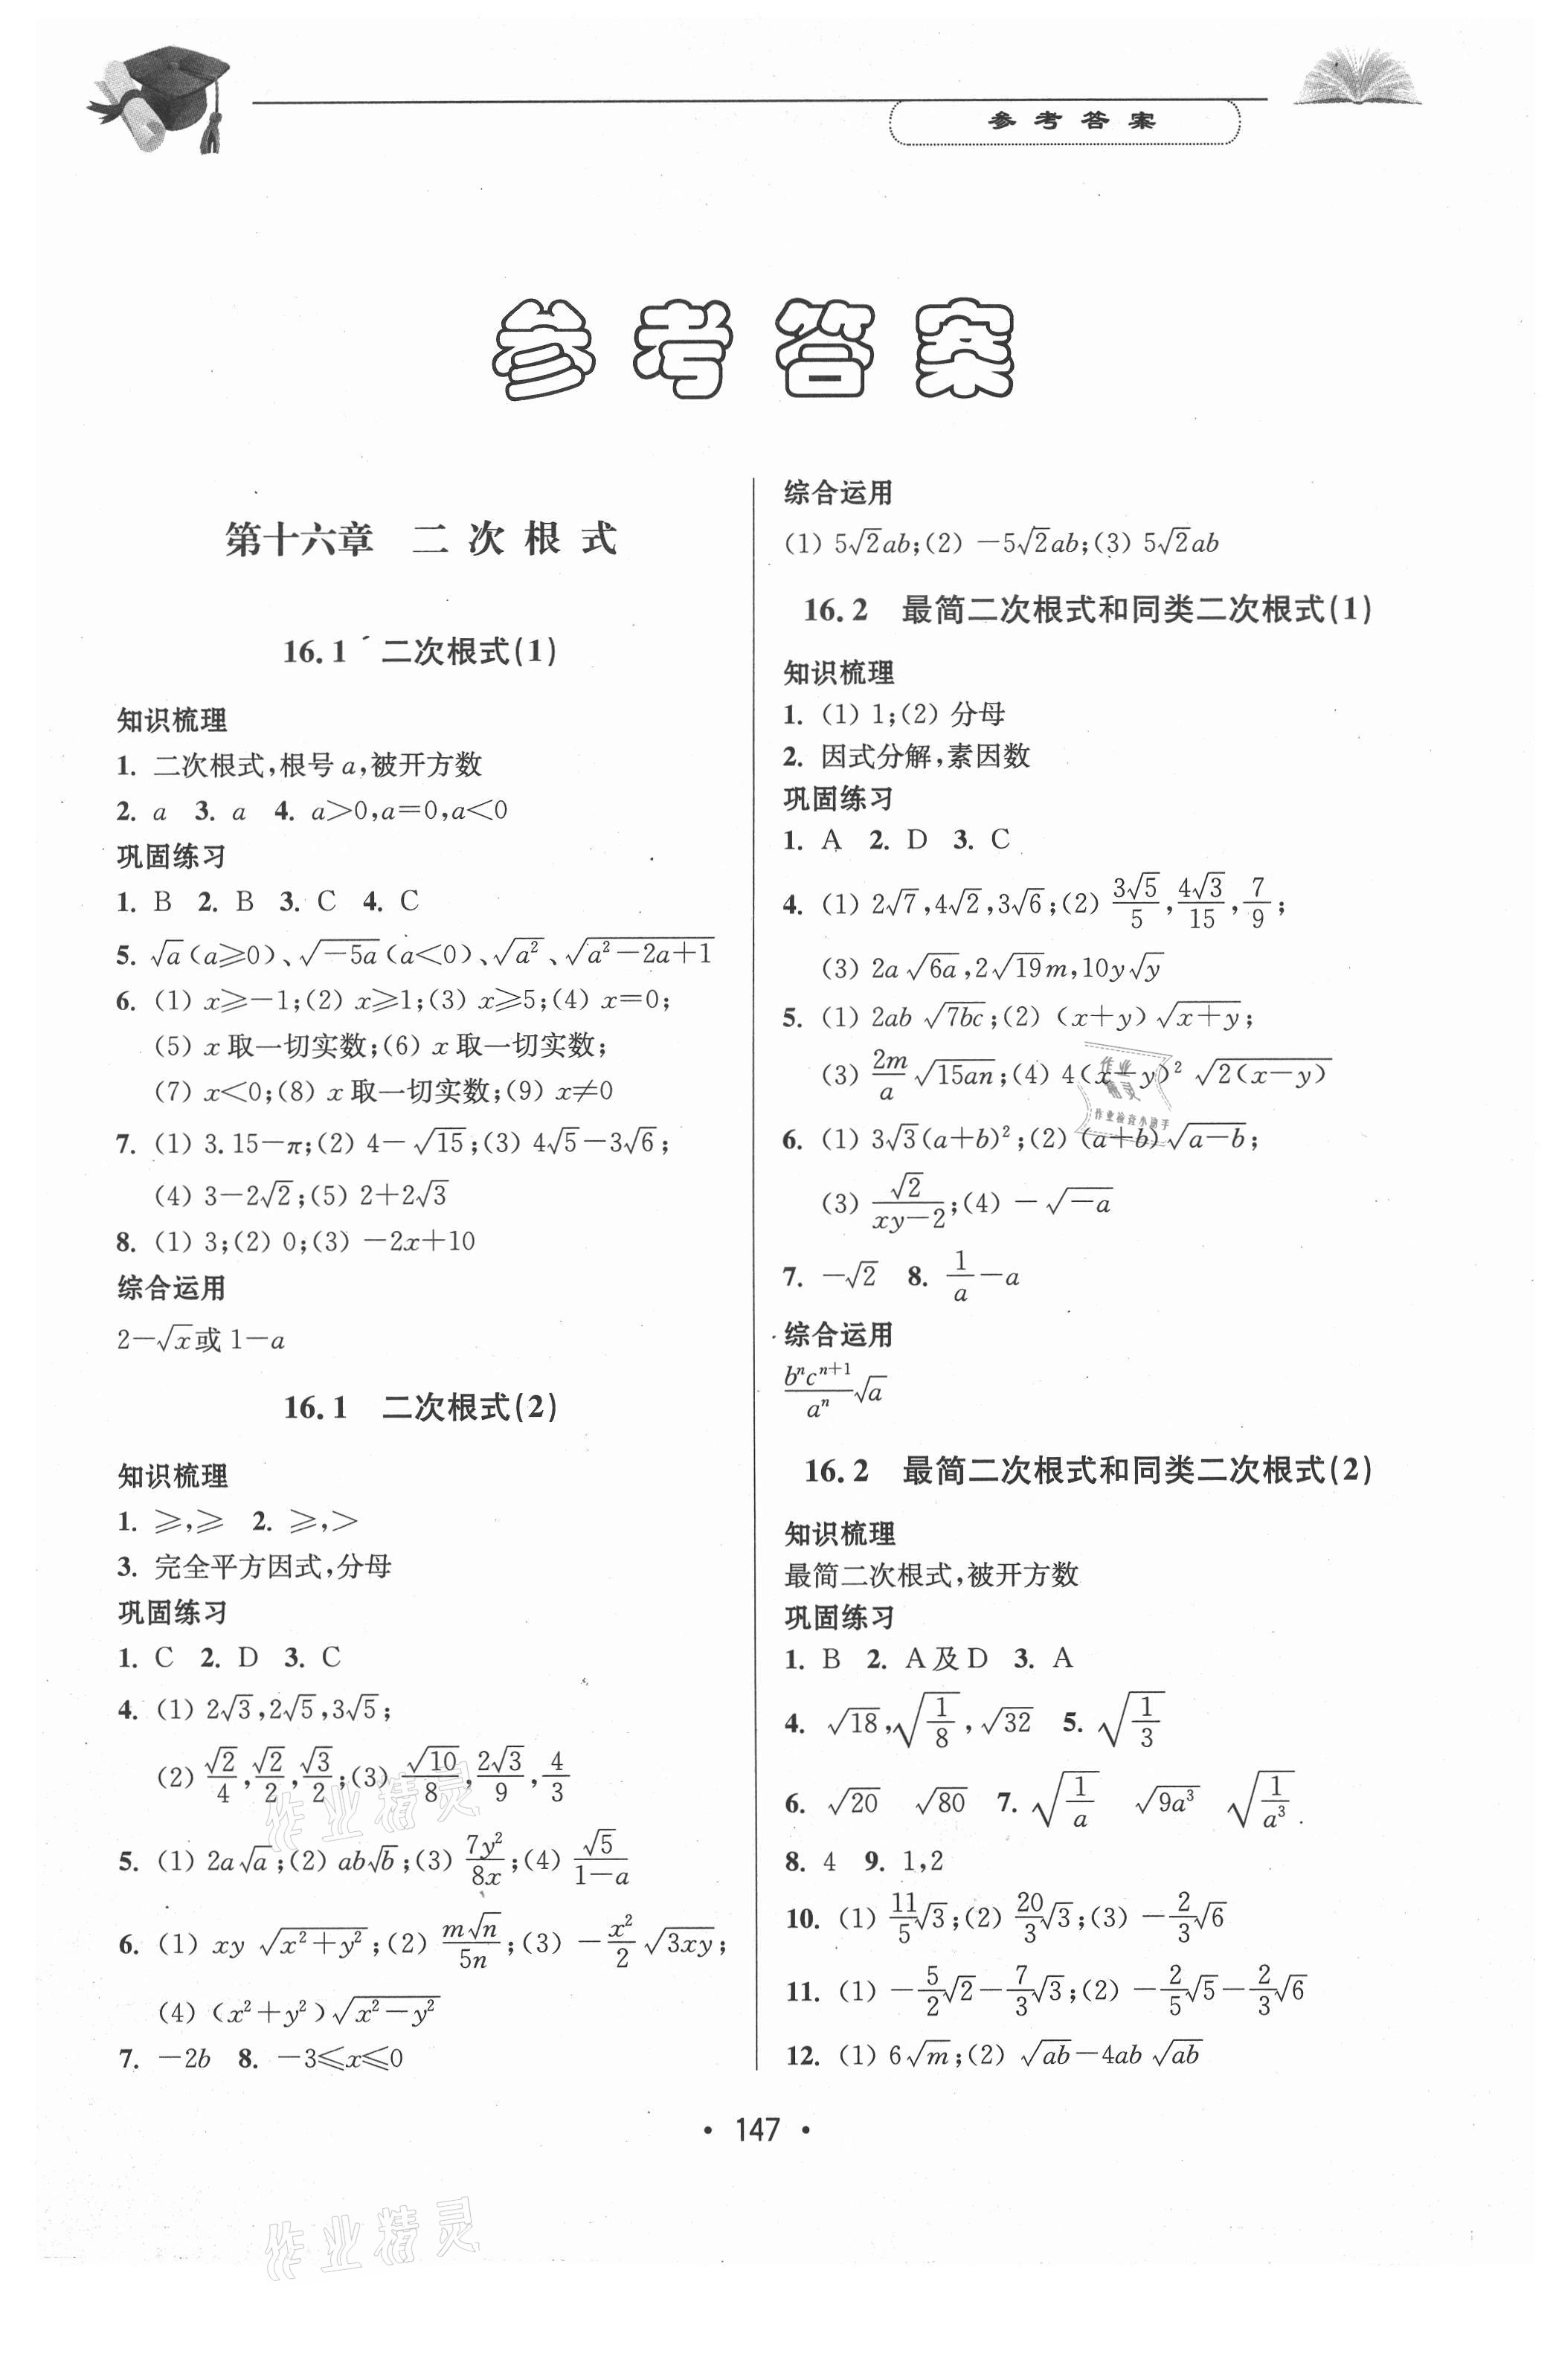 参考答案
参考答案
第十六章 二次根式
16.1 二次根式(1)
知识梳理
1. 二次根式,根号 a,被开方数
2. a 3. a 4. a>0,a=0,a<0
巩固练习
1. B 2. B 3. C 4. C
5. √a(a≥0)、√(-5a)(a<0)、√(a²)、√(a²-2a+1)
6. (1) x≥-1;(2) x≥1;(3) x≥5;(4) x=0;
(5) x 取一切实数;(6) x 取一切实数;
(7) x<0;(8) x 取一切实数;(9) x≠0
7. (1) 3.15-π;(2) 4-√15;(3) 4√5-3√6;
(4) 3-2√2;(5) 2+2√3
8. (1) 3;(2) 0;(3) -2x+10
综合运用
2-√x或 1-a
16.1 二次根式(2)
知识梳理
1. ≥,≥ 2. ≥,>
3. 完全平方因式,分母
巩固练习
1. C 2. D 3. C
4. (1) 2√3,2√5,3√5;
(2) √2/4,√2/2,√3/2;(3) √10/8,2√3/9,4/3
5. (1) 2a√a;(2) ab√b;(3) 7y²/8x;(4) √5/(1-a)
6. (1) xy√(x²+y²);(2) m√n/5n;(3) -x²/2 √(3xy);
(4) (x²+y²)√(x²-y²)
7. -2b 8. -3≤x≤0
综合运用
(1) 5√2ab;(2) -5√2ab;(3) 5√2ab
16.2 最简二次根式和同类二次根式(1)
知识梳理
1. (1) 1;(2) 分母
2. 因式分解,素因数
巩固练习
1. A 2. D 3. C
4. (1) 2√7,4√2,3√6;(2) 3√5/5,4√3/15,7/9;
(3) 2a√(6a),2√19m,10y√y
5. (1) 2ab√(7bc);(2) (x+y)√(x+y);
(3) 2m/a √(15an);(4) 4(x-y)²√(2(x-y))
6. (1) 3√3(a+b)²;(2) (a+b)√(a-b);
(3) √2/(xy-2);(4) -√(-a)
7. -√2 8. 1/a-a
综合运用
bⁿcⁿ⁺¹/aⁿ √a
16.2 最简二次根式和同类二次根式(2)
知识梳理
最简二次根式,被开方数
巩固练习
1. B 2. A及D 3. A
4. √18,√(1/8),√32 5. √(1/3)
6. √20 √80 7. √(1/a) √(9a³) √(1/a³).
8. 4 9. 1,2
10. (1) 11/5√3;(2) 20/3√3;(3) -2/3√6
11. (1) -5/2√2-7/3√3;(2) -2/5√5-2/3√6
12. (1) 6√m;(2) √(ab)-4ab√(ab)
作业精灵
作业检查小助手
作业精灵
· 147 ·
作业精灵